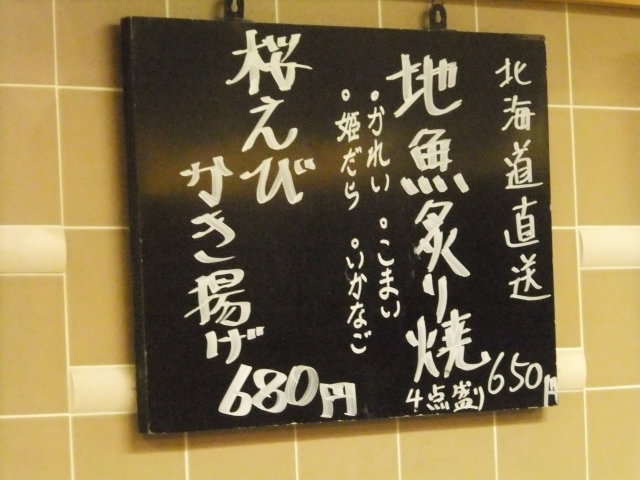 北海道直送
地魚炙り焼
4点盛り 650円
・かれい ・こまい
・姫だら ・いかなご
桜えび
かき揚げ
680円